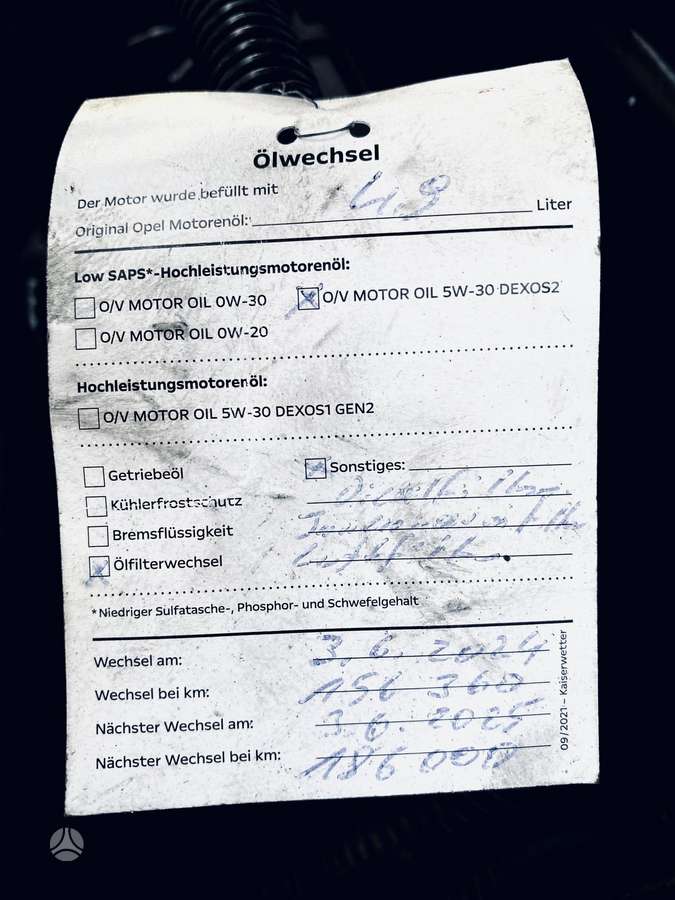 Ölwechsel
Der Motor wurde befüllt mit
Original Opel Motorenöl: 4.8 Liter
Low SAPS*-Hochleistungsmotorenöl:
O/V MOTOR OIL 0W-30 O/V MOTOR OIL 5W-30 DEXOS2
O/V MOTOR OIL 0W-20
Hochleistungsmotorenöl:
O/V MOTOR OIL 5W-30 DEXOS1 GEN2
Getriebeöl Sonstiges:
Kühlerfrostschutz
Bremsflüssigkeit
Ölfilterwechsel
*Niedriger Sulfatasche-, Phosphor- und Schwefelgehalt
Wechsel am: 3.6.2024
Wechsel bei km: 156 360
Nächster Wechsel am: 3.6.2025
Nächster Wechsel bei km: 186 000
09/2021 – Kaiserwetter